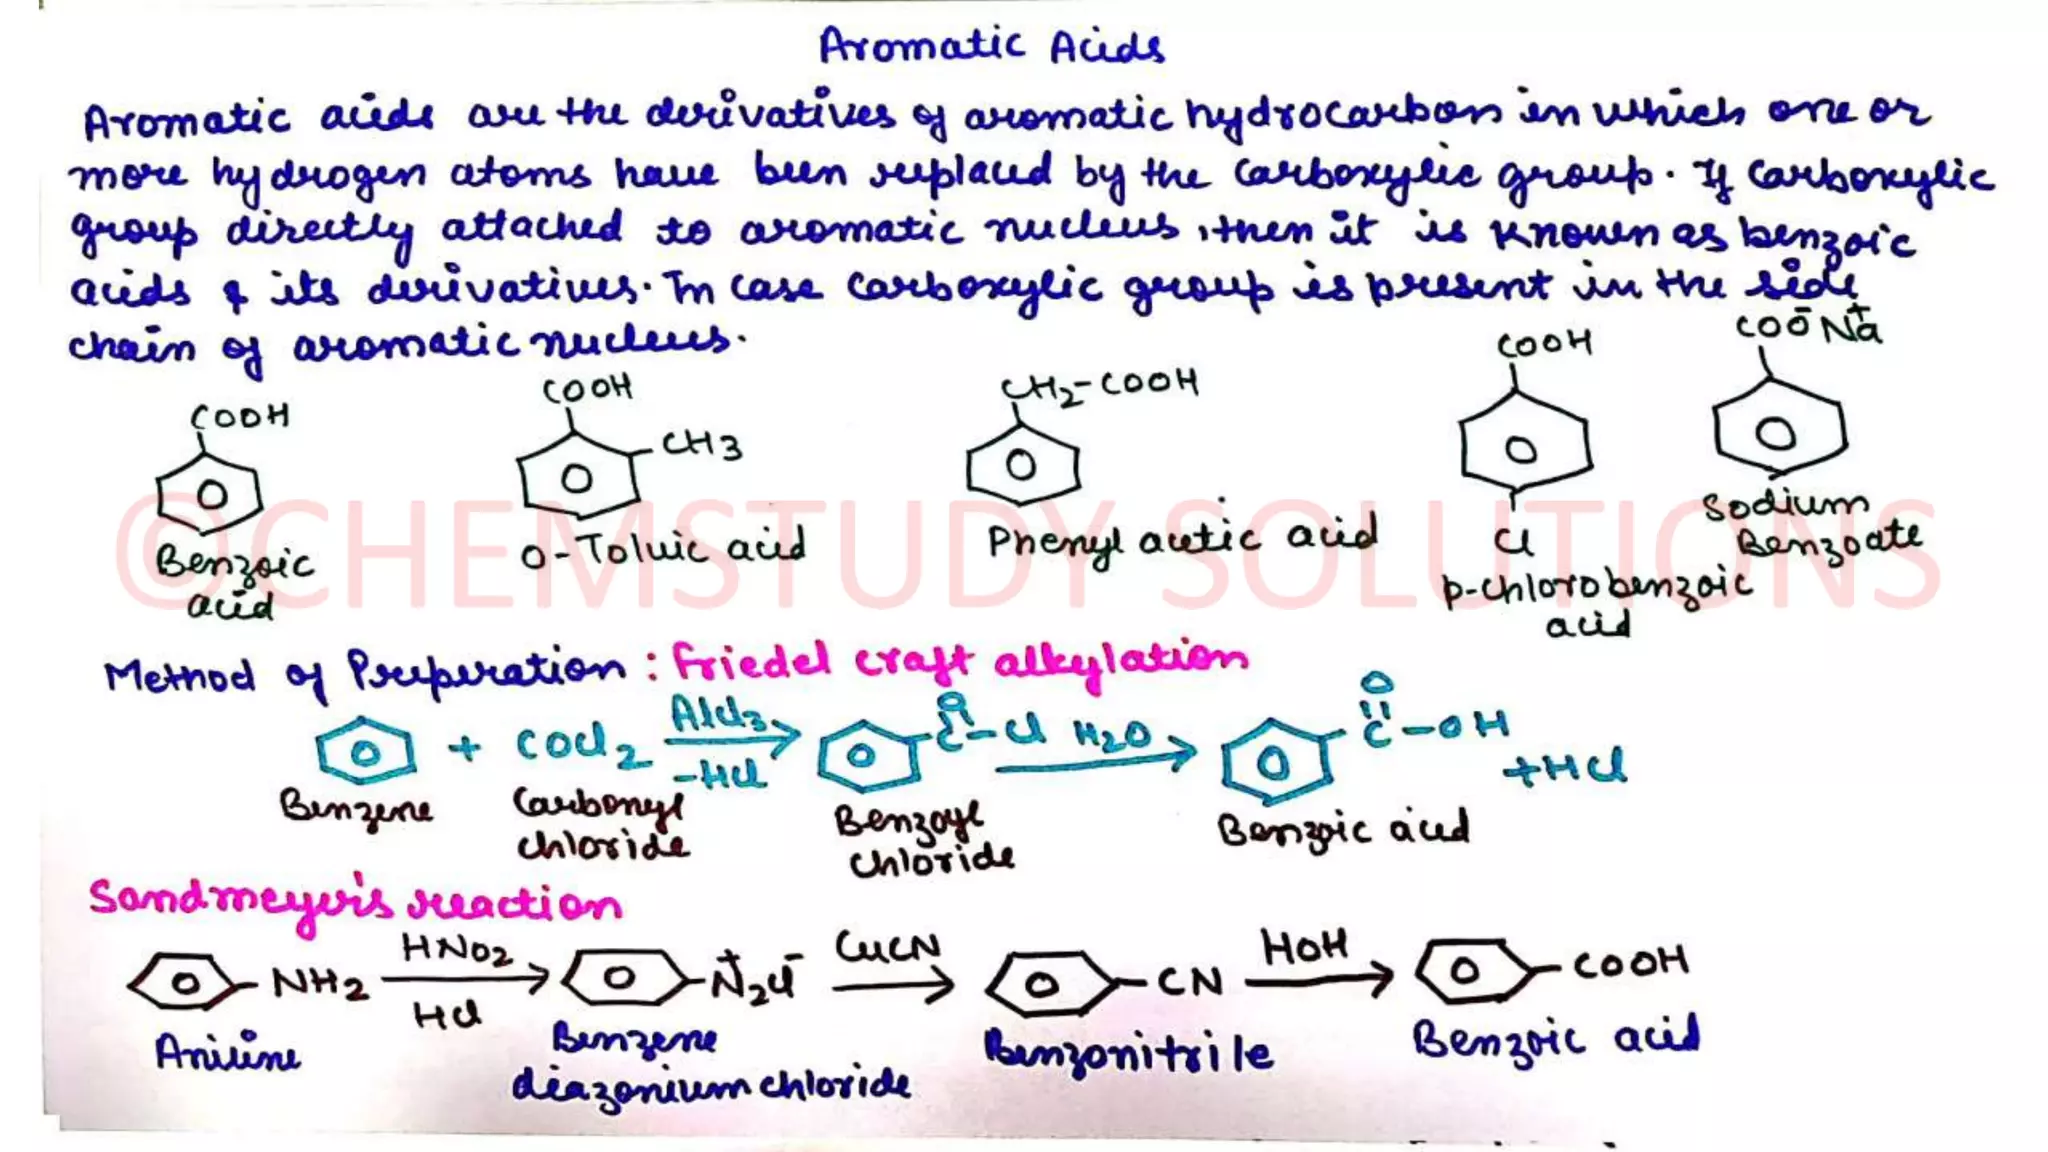 Aromatic Acids
Aromatic acids are the derivatives of aromatic hydrocarbon in which one or
more hydrogen atoms have been replaced by the carboxylic group. If carboxylic
group directly attached to aromatic nucleus, then it is known as benzoic
acids & its derivatives. In case carboxylic group is present in the side
chain of aromatic nucleus.
COOH
COOH
CH3
CH2-COOH
COOH
COO⁻Na⁺
Benzoic
acid
o-Toluic acid
Phenyl acetic acid
Cl
p-chlorobenzoic
acid
Sodium
Benzoate
©CHEMSTUDY SOLUTIONS
Method of Preperation : Friedel craft alkylation
+ COCl2 AlCl3 -HCl O C-Cl H2O O C-OH +HCl
Benzene
Carbonyl
chloride
Benzoyl
chloride
Benzoic acid
Sandmeyer's reaction
-NH2 HNO2 HCl -N⁺2Cl⁻ CuCN -CN HOH -COOH
Aniline
Benzene
diazonium chloride
Benzonitrile
Benzoic acid